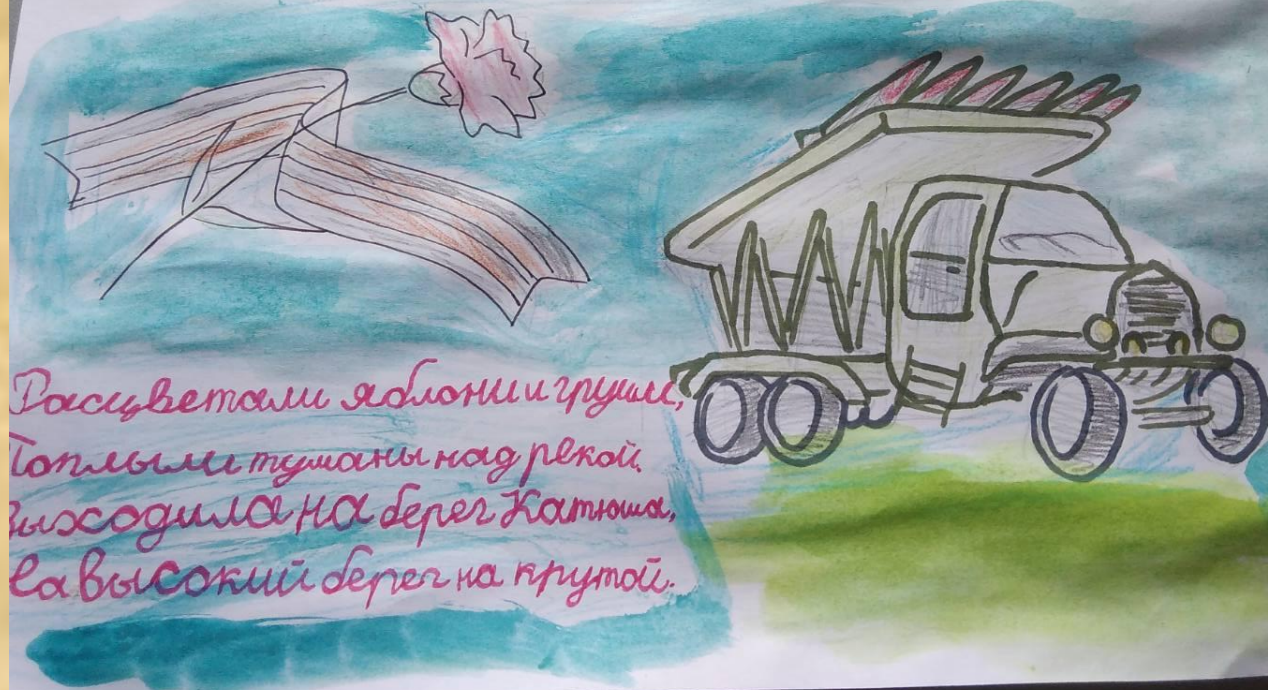 Расцветали яблони и груши,
Поплыли туманы над рекой.
Выходила на берег Катюша,
На высокий берег на крутой.